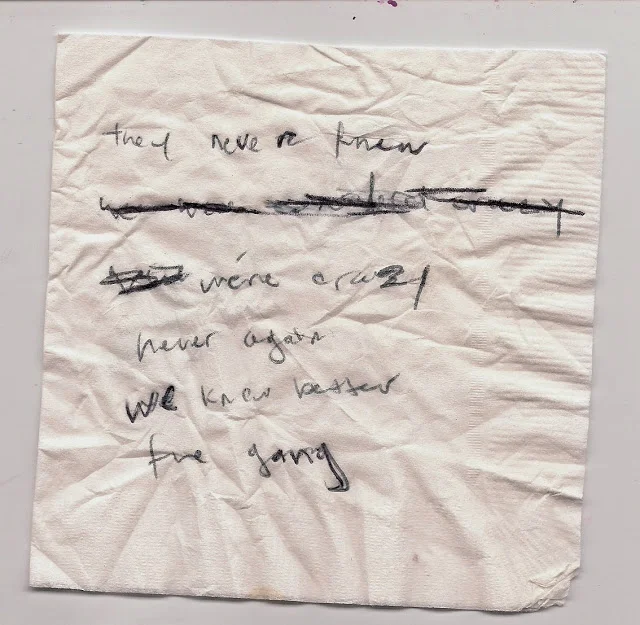 they never knew
crazy
we're crazy
never again
we knew better
the gang